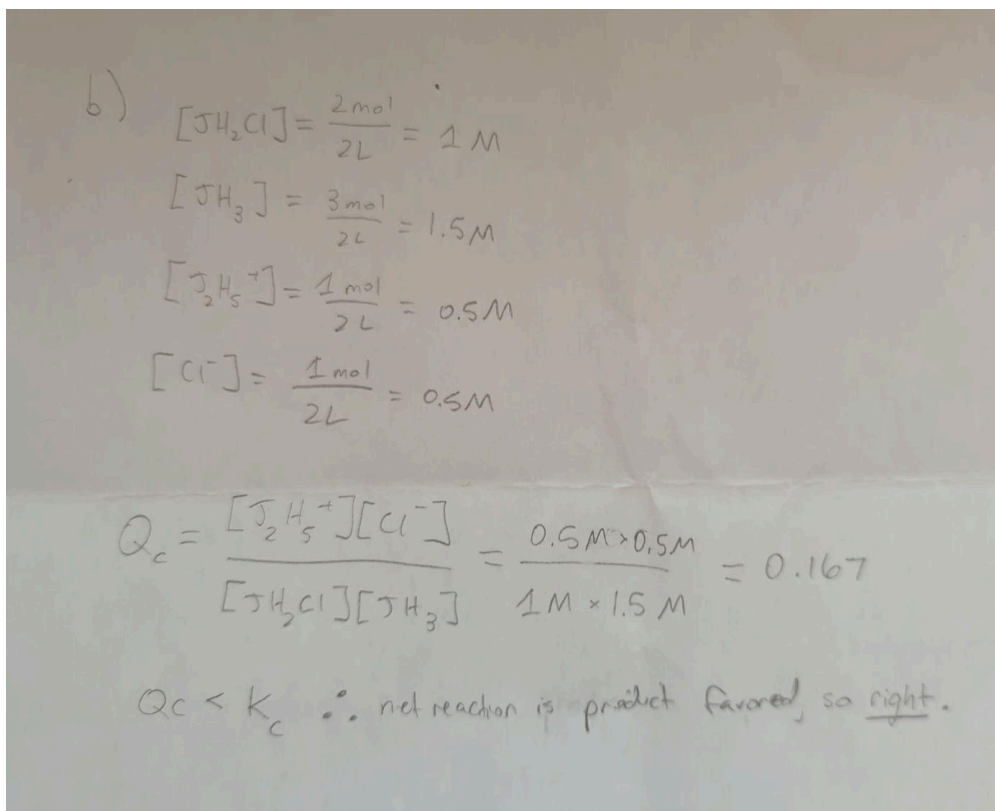 b)
[JH₂Cl] = 2mol/2L = 1 M
[JH₃] = 3mol/2L = 1.5M
[J₂H₅⁺] = 1mol/2L = 0.5M
[Cl⁻] = 1mol/2L = 0.5M
Q_c = [J₂H₅⁺][Cl⁻]/[JH₂Cl][JH₃] = 0.5M×0.5M/1M×1.5M = 0.167
Qc < K_c ∴ net reaction is product favored, so right.